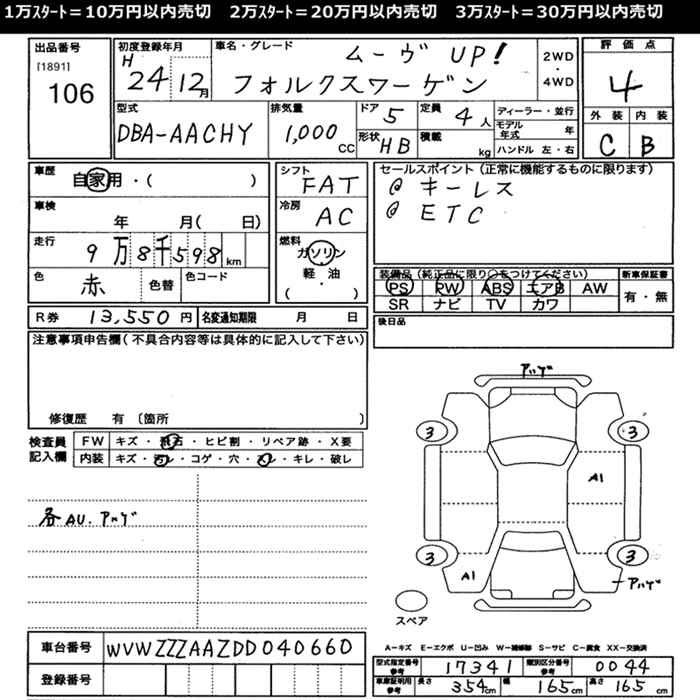 1万ｽﾀｰﾄ＝10万円以内売切 2万ｽﾀｰﾄ＝20万円以内売切 3万ｽﾀｰﾄ＝30万円以内売切
出品番号
[1891]
106
初度登録年月
H 24 12月
車名・グレード
ムーヴ UP!
フォルクスワーゲン
2WD
・
4WD
評価点
4
外装 内装
C B
型式
DBA-AACHY
排気量
1,000 CC
ドア 5
形状 HB
定員 4 人
積載 kg
ディーラー・並行
モデル年式 年
ハンドル 左・右
車歴
自家用・( )
シフト
FAT
セールスポイント (正常に機能するものに限ります)
@ キーレス
@ ETC
車検
年 月( 日)
冷房
AC
走行
9万8千598 km
燃料
ガソリン
・
軽・油
( )
色
赤
色替
色コード
装備品 (純正品に限り○をつけてください)
PS PW ABS エアB AW
SR ナビ TV カワ
新車保証書
有・無
R券 13,550 円
名変通知期限 月 日
後日品
注意事項申告欄(不具合内容等は具体的に記入して下さい)
修復歴 有 〔箇所 〕
検査員
記入欄
FW キズ・飛石・ヒビ割・リペア跡・X要
内装 キズ・汚レ・コゲ・穴・スレ・キレ・破レ
各AU. アハゲ
アハゲ
3 3
A1
3 3
A1
アハゲ
スペア
A－キズ E－エクボ U－凹み W－補修跡 S－サビ C－腐食 XX－交換済
車台番号 WVWZZZAAZDD040660
登録番号
型式指定番号
参考
17341
類別区分番号
参考
0044
車庫証明用
参考
長さ 354cm 幅 165cm 高さ 165cm